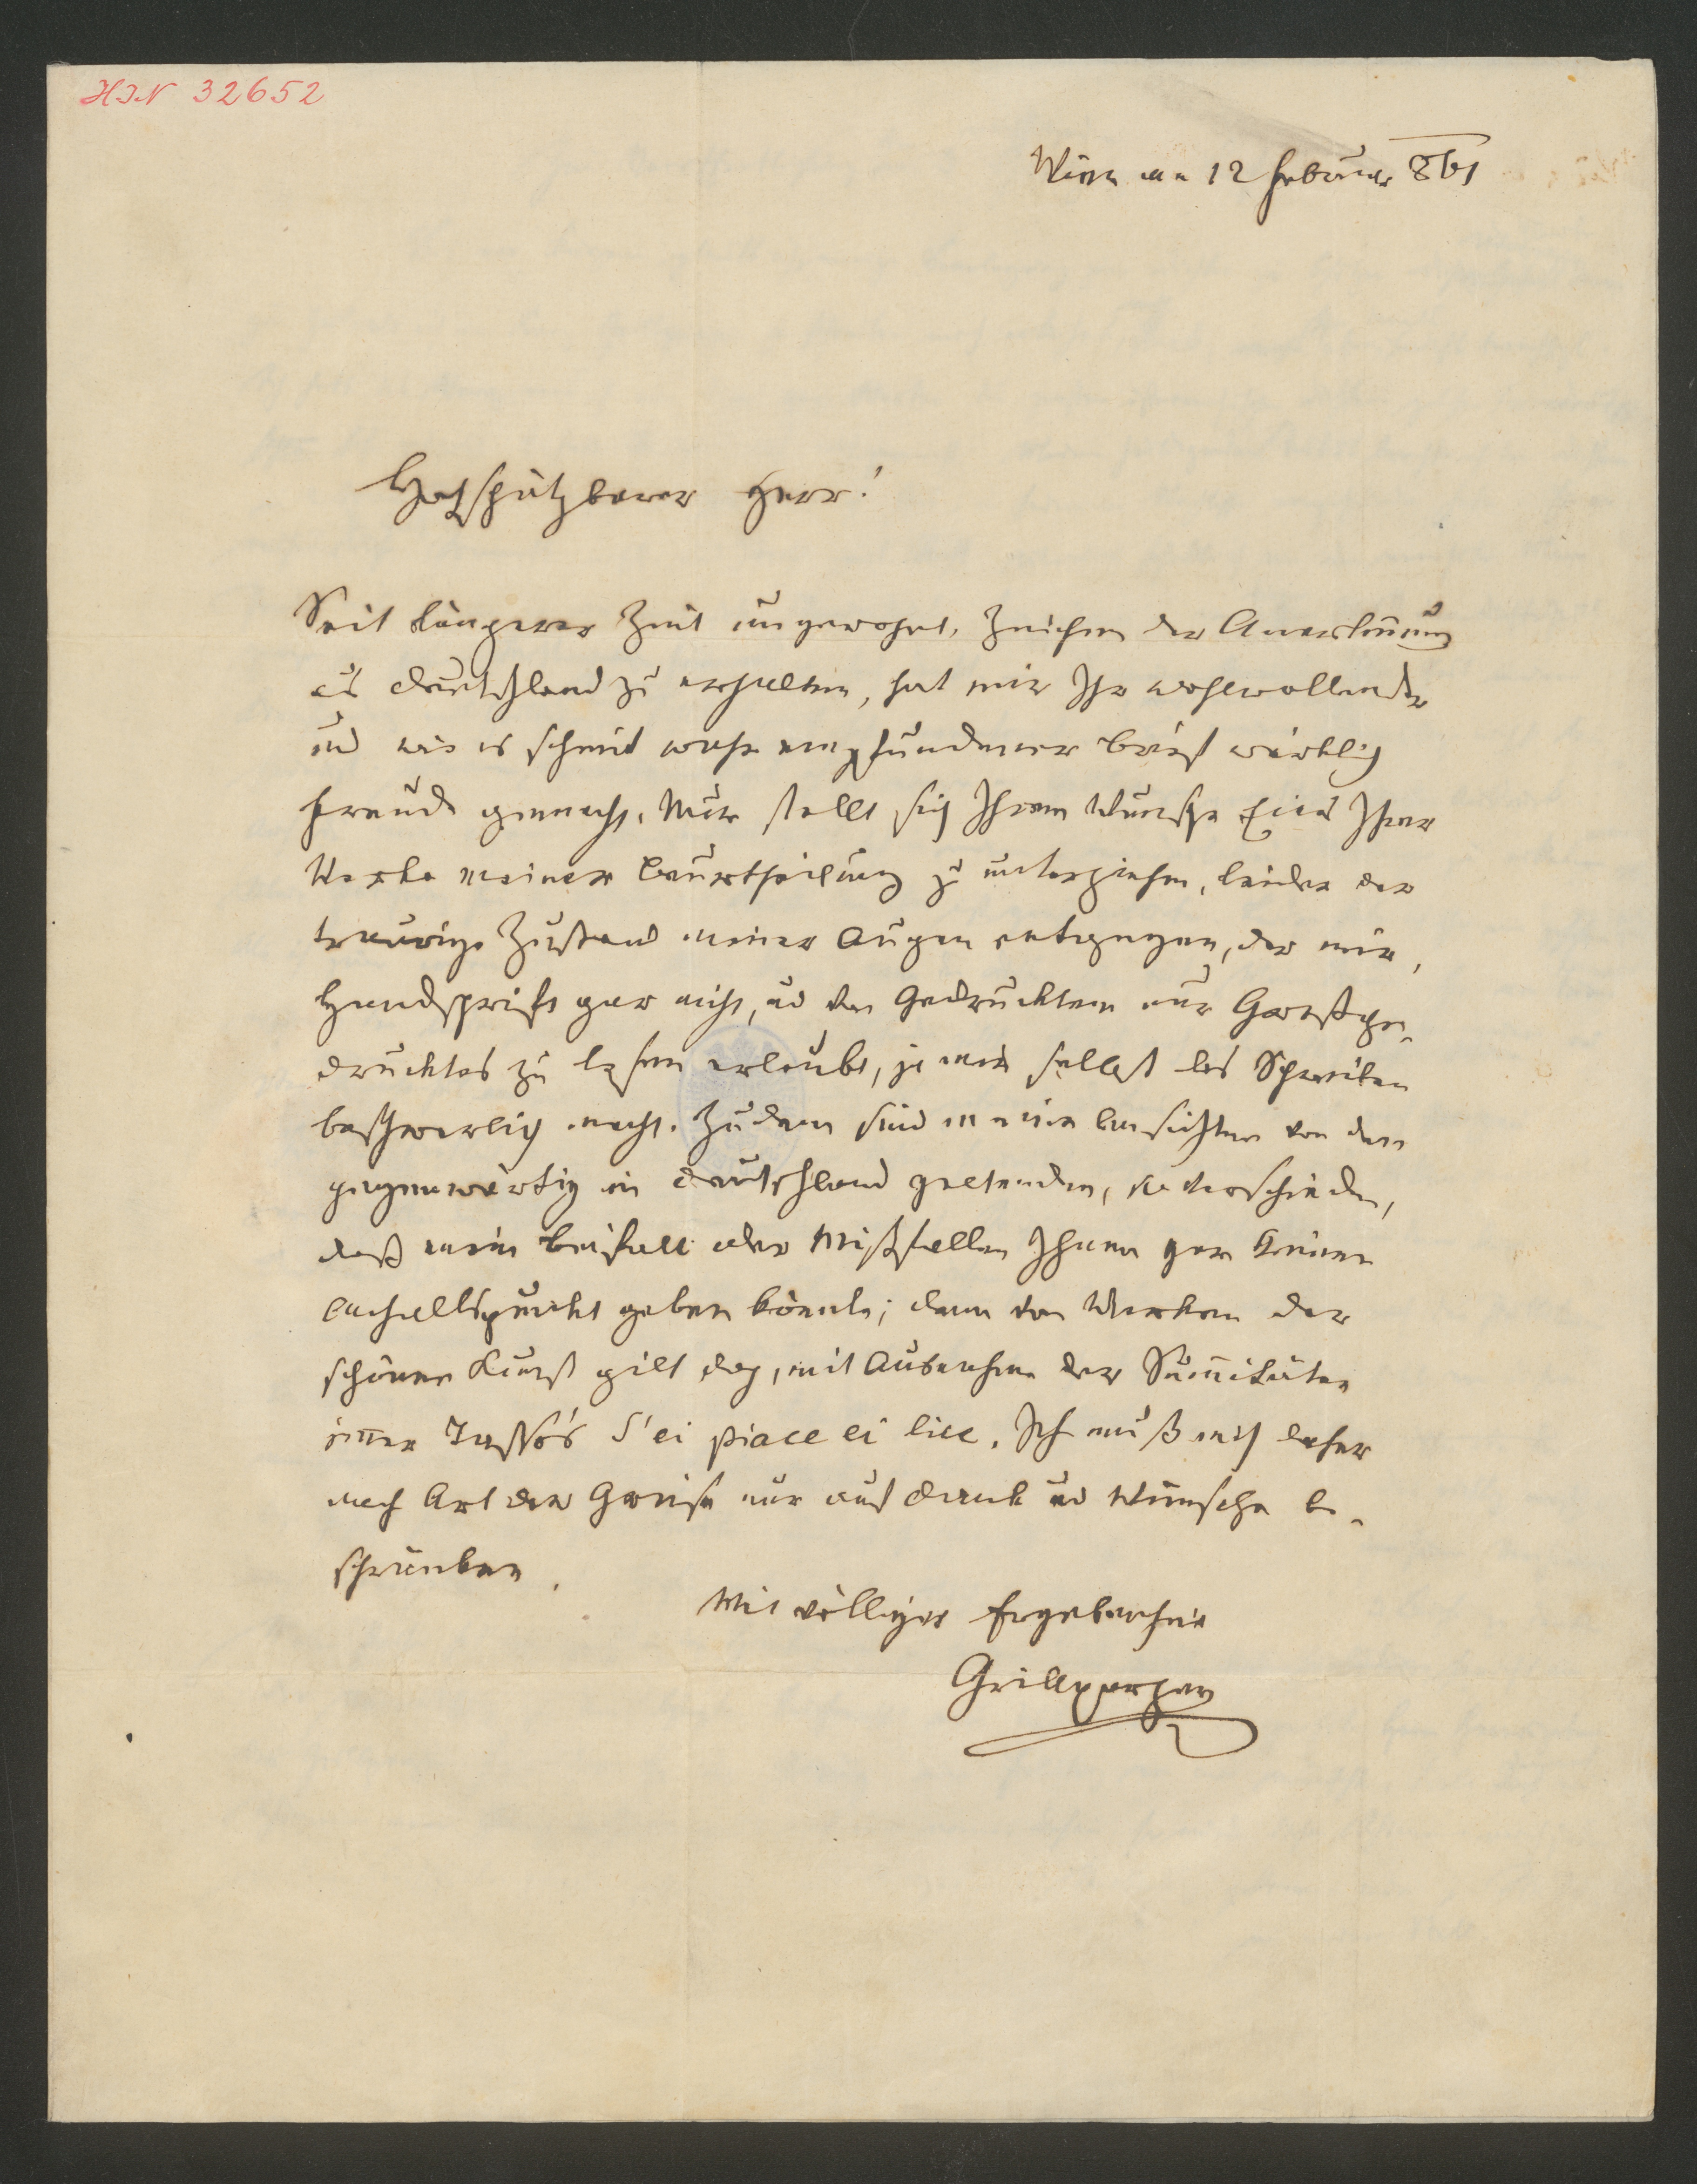 HIN 32652
Wien am 12 Februar 861
Hochschätzbarer Herr!
Seit längerer Zeit ungewohnt, Zeichen der Anerkennung
aus Deutschland zu erhalten, hat mir Ihr wohlwollender
und wie es scheint wahr empfundener Brief wirklich
Freude gemacht. Nur stellt sich Ihrem Wunsche Eines Ihrer
Werke meiner Beurtheilung zu unterziehen, leider der
traurige Zustand meiner Augen entgegen, der mir,
Handschrift gar nicht, und von Gedrucktem nur Großge-
drucktes zu lesen erlaubt, ja mir selbst das Schreiben
beschwerlich macht. Zudem sind meine Ansichten von den
gegenwärtig in Deutschland geltenden, so verschieden,
daß mein Beifall oder Mißfallen Ihnen gar keinen
Anhaltspunkt geben könnte; denn von Werken der
schönen Kunst gilt doch, mit Ausnahme der Sumitäten
immer Tasso's S'ei piace ei lice. Ich muß mich daher
nach Art der Greise nur auf Dank und Wünsche be-
schränken.
Mit völliger Ergebenheit
Grillparzer